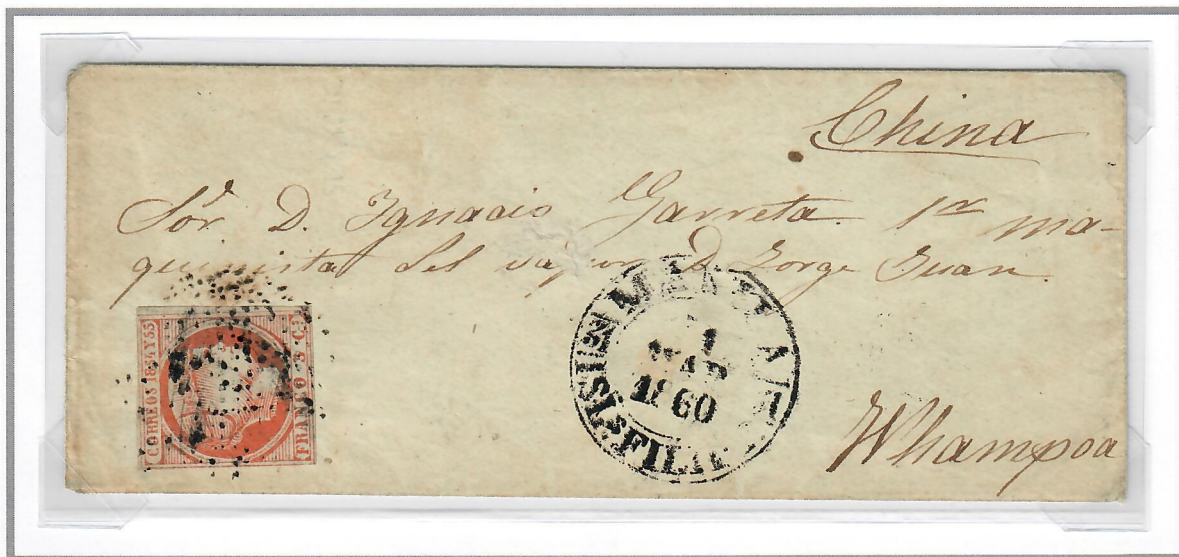 China
Sor. D. Ignacio Garreta 1er ma-
quinista del vapor D. Jorge Juan
Whampoa
CORREOS 1854 Y 55
FRANCO 5 C.
MANILA
MAR
1860
ISLS FILIP